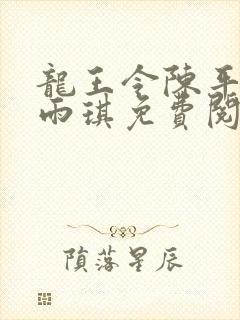 龍王令陳平
雨琪免費閱
隕落星辰